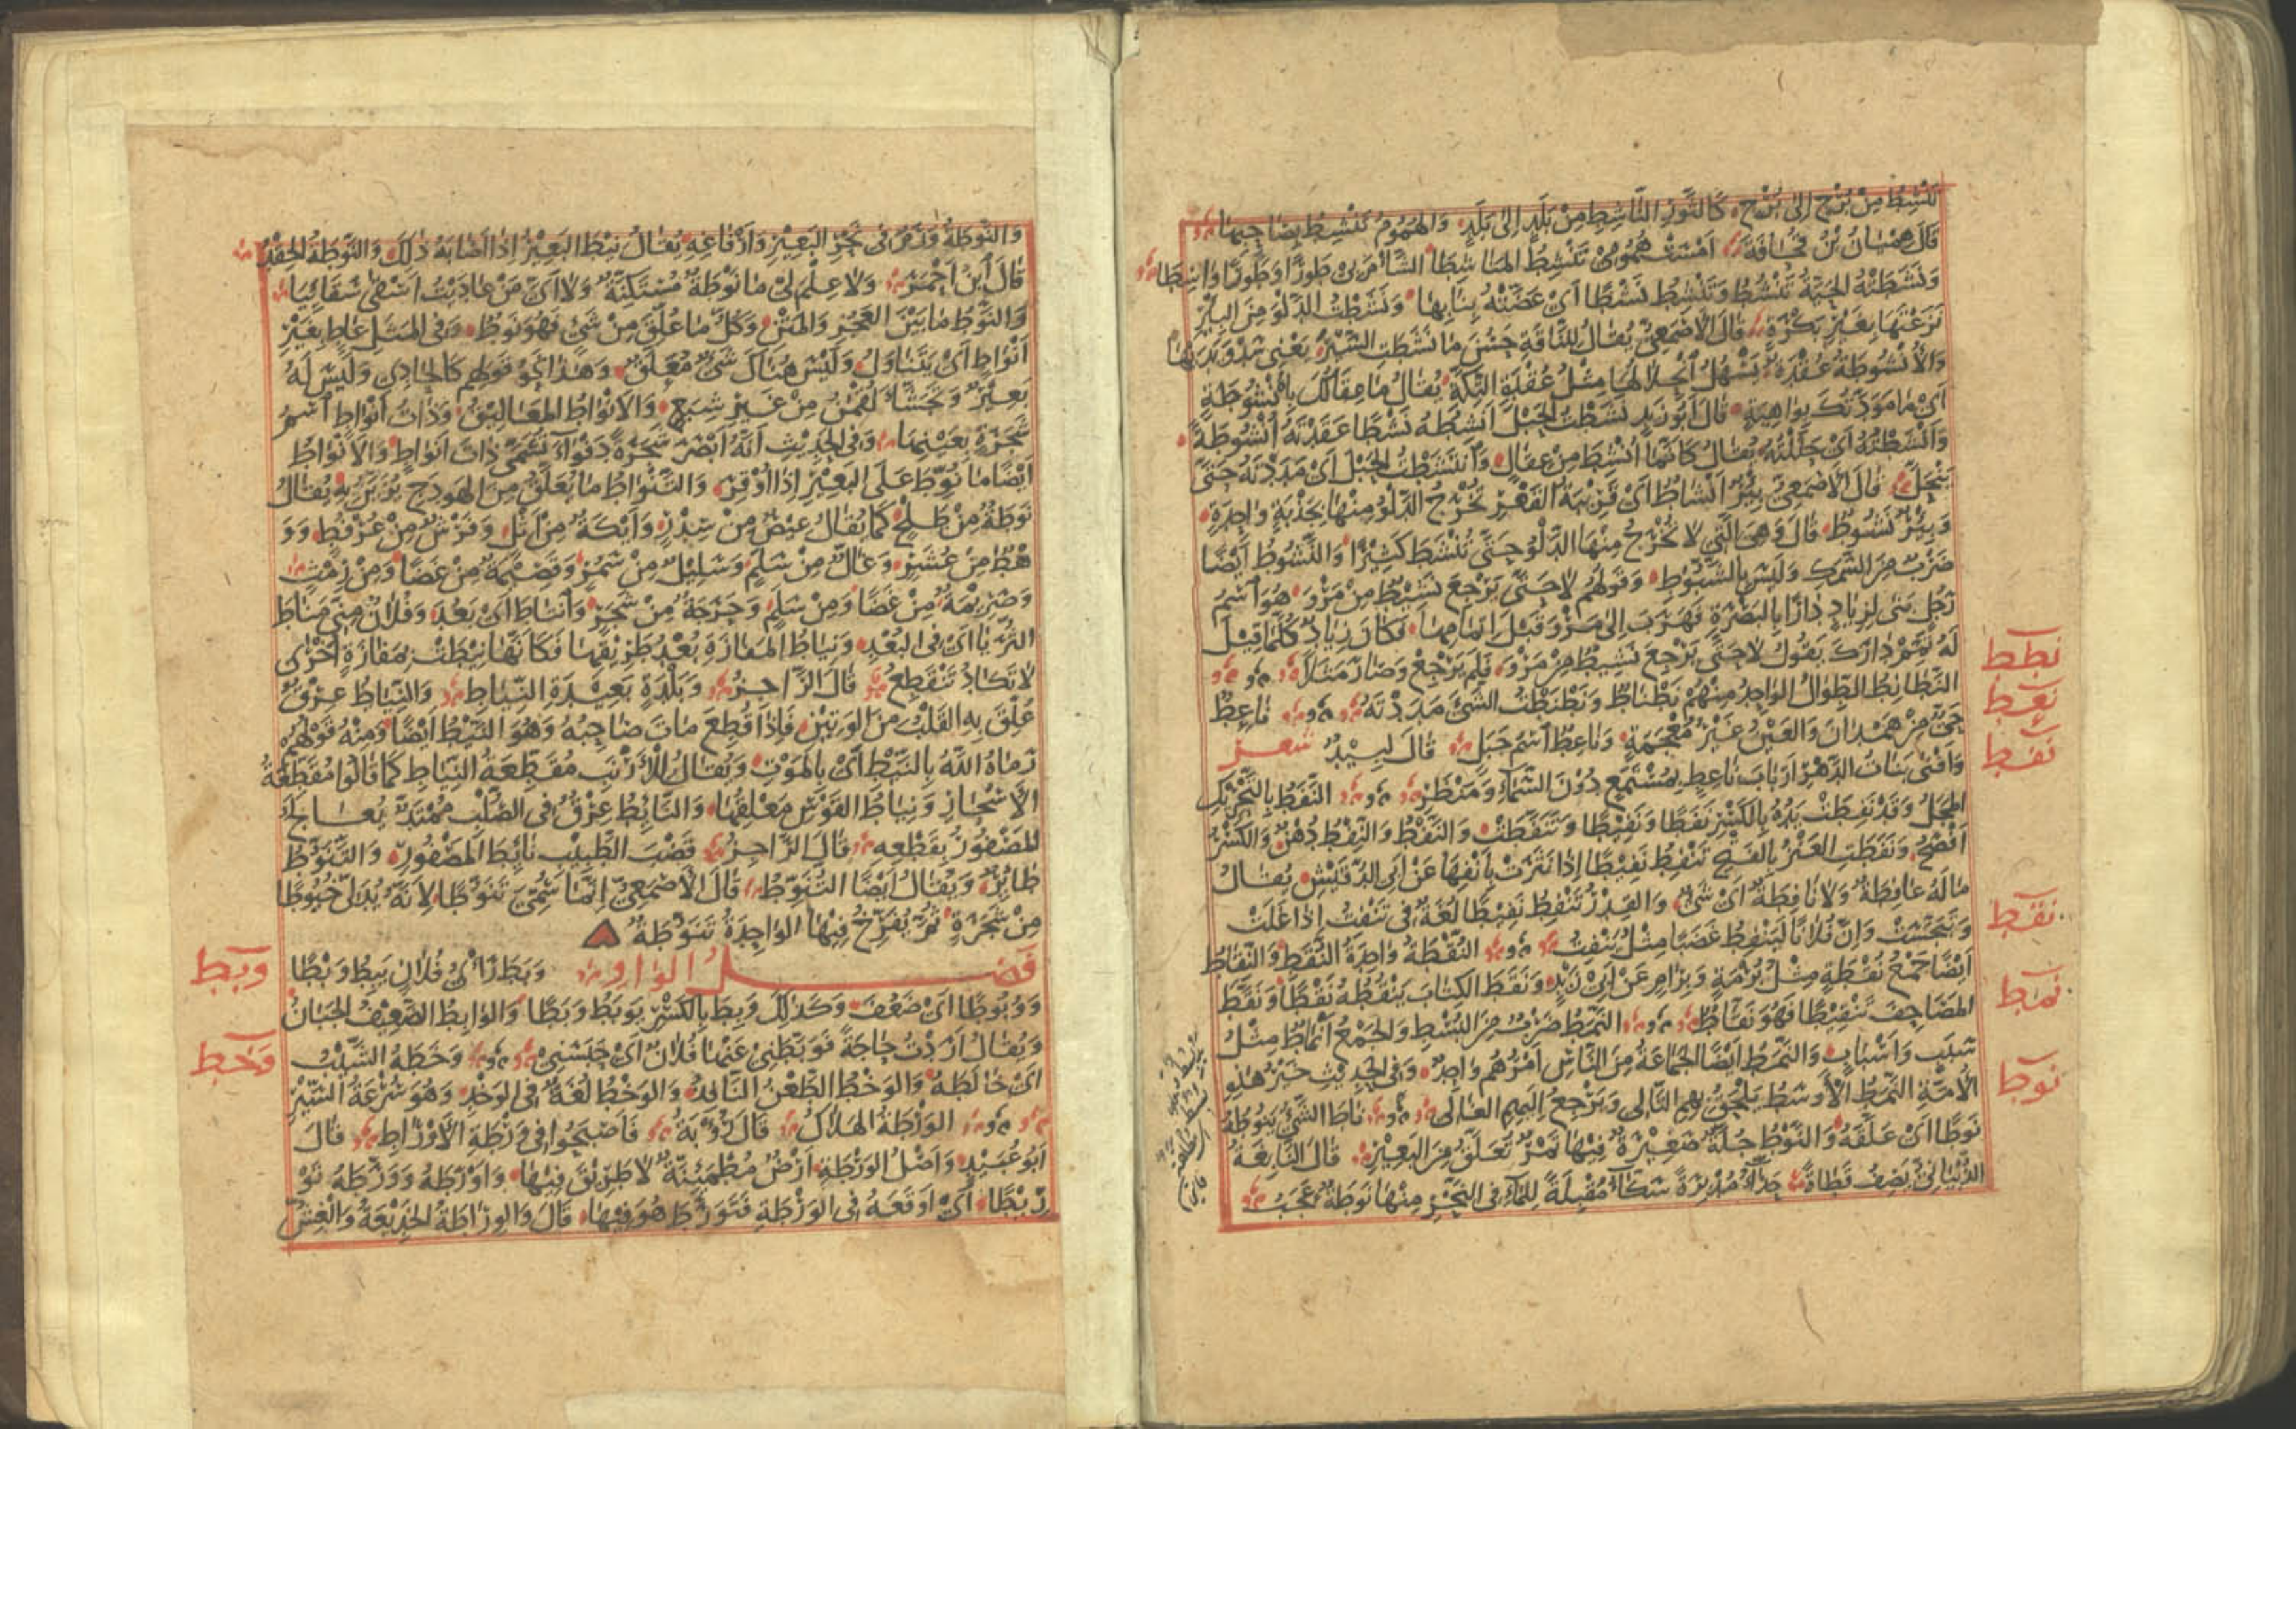 تنشط من برج إلى برج كالثور الناشط من بلد إلى بلد والهموم تنشط بصاحبها
قال هميان بن قحافة أمست همومي تنشط المناشطا الشأم بي طورا وطورا واسطا
ونشطته الحية تنشط وتنشط نشطا أي عضته بنابها ونشطت الدلو من البئر
نزعتها بغير بكرة قال الأصمعي يقال للناقة حسن ما نشطت السير يعني سدو يديها
والأنشوطة عقدة يسهل انحلالها مثل عقدة التكة يقال ما عقالك بأنشوطة
أي ما مودتك بواهية قال أبو زيد نشطت الحبل أنشطه نشطا عقدته أنشوطة
وأنشطته أي حللته يقال كأنما أنشط من عقال وانتشطت الحبل أي مددته حتى
ينحل قال الأصمعي بئر أنشاط أي قريبة القعر تخرج الدلو منها بجذبة واحدة
وبئر نشوط قال وهي التي لا تخرج منها الدلو حتى تنشط كثيرا والنشوط أيضا
ضرب من السمك وليس بالشبوط وقولهم لا حتى يرجع نشيط من مرو هو اسم
رجل بنى لزياد دارا بالبصرة فهرب إلى مرو قبل إتمامها فكان زياد كلما قيل
له تمم دارك يقول لا حتى يرجع نشيط من مرو فلم يرجع وصار مثلا
نطط
النطانط الطوال الواحد منهم نطناط ونطنطت الشيء مددته ناعظ
نعط
حي من همدان والعين غير معجمة وناعط اسم جبل قال لبيد شعر
نفط
وأفنى بنات الدهر أرباب ناعط بمستمع دون السماء ومنظر النفط بالتحريك
المجل وقد نفطت يده بالكسر نفطا ونفيطا وتنفطت والنفط والنفط دهن والكسر
أفصح ونفطت العنز بالفتح تنفط نفيطا إذا نثرت بأنفها عن أبي الدقيش يقال
ما له عافطة ولا نافطة أي شيء والقدر تنفط نفيطا لغة في تنفت إذا غلت
وتبجست وإن فلانا لينفط غضبا مثل ينفت النقطة واحدة النقط والنقاط
نقط
أيضا جمع نقطة مثل برمة وبرام عن أبي زيد ونقط الكتاب ينقطه نقطا ونقط
المصاحف تنقيطا فهو نقاط النمط ضرب من البسط والجمع أنماط مثل
نمط
سبب وأسباب والنمط أيضا الجماعة من الناس أمرهم واحد وفي الحديث خير هذه
الأمة النمط الأوسط يلحق بهم التالي ويرجع إليهم الغالي ناط الشيء ينوطه
نوط
نوطا أي علقه والنوط جلة صغيرة فيها تمر تعلق من البعير قال النابغة
الذبياني يصف قطاة حذاء مدبرة سكاء مقبلة للماء في النحر منها نوطة عجب
والنوطة ورم في نحر البعير وأرفاغه يقال نيط البعير إذا أصابه ذلك والنوطة الحقد
قال ابن أحمر ولا علم لي ما نوطة مستكنة ولا أي من عاديت أسقى سقائيا
والنوط ما بين العجز والمتن وكل ما علق من شيء فهو نوط وفي المثل عاط بغير
أنواط أي يتناول وليس هناك شيء معلق وهذا نحو قولهم كالحادي وليس له
بعير وتجشأ لقمن من غير شبع والأنواط المعاليق وذات أنواط اسم
شجرة بعينها وفي الحديث أنه أبصر شجرة دفواء تسمى ذات أنواط والأنواط
أيضا ما نوط على البعير إذا أوقر والتنواط ما يعلق من الهودج يزين به يقال
نوطة من طلح كما يقال عيص من سدر وأيكة من أثل وفرش من عرفط وو
هط من عشر وغال من سلم وسليل من سمر وقصيمة من غضا ومن رمث
وصريمة من غضا ومن سلم وحرجة من شجر وانتاط أي بعد وفلان مني مناط
الثريا أي في البعد ونياط المفازة بعد طريقها فكأنها نيطت بمفازة أخرى
لا تكاد تنقطع قال الراجز وبلدة بعيدة النياط والنياط عرق
علق به القلب من الوتين فإذا قطع مات صاحبه وهو النيط أيضا ومنه قولهم
رماه الله بالنيط أي بالموت ويقال للأرنب مقطعة النياط كما قالوا مقطعة
الأسحار ونياط القوس معلقها والنائط عرق في الصلب ممتد يعالج
المصفور بقطعه قال الراجز قضب الطبيب نائط المصفور والتنوط
طائر ويقال أيضا التنوط قال الأصمعي إنما سمي تنوطا لأنه يدلي خيوطا
من شجرة ثم يفرخ فيها الواحدة تنوطة
فصل الواو وبط رأي فلان يبط وبطا
وبط
ووبوطا أي ضعف وكذلك وبط بالكسر يوبط وبطا والوابط الضعيف الجبان
ويقال أردت حاجة فوبطني عنها فلان أي حبسني وخطه الشيب
وخط
أي خالطه والوخط الطعن النافذ والوخط لغة في الوخد وهو سرعة السير
الورطة الهلاك قال رؤبة فأصبحوا في ورطة الأوراط قال
أبو عبيد وأصل الورطة أرض مطمئنة لا طريق فيها وأورطه وورطه تو
ريطا أي أوقعه في الورطة فتورط هو فيها قال والوراطة الخديعة والغش